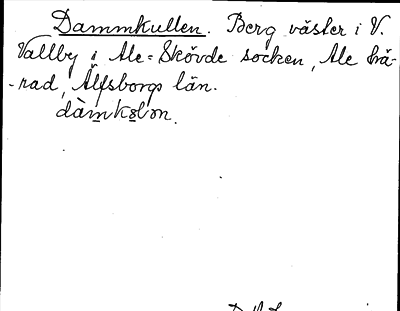 Dammkullen. Berg väster i V.
Vallby i Ale-Skövde socken, Ale hä-
-rad, Älfsborgs län.
dàmkolǝn.